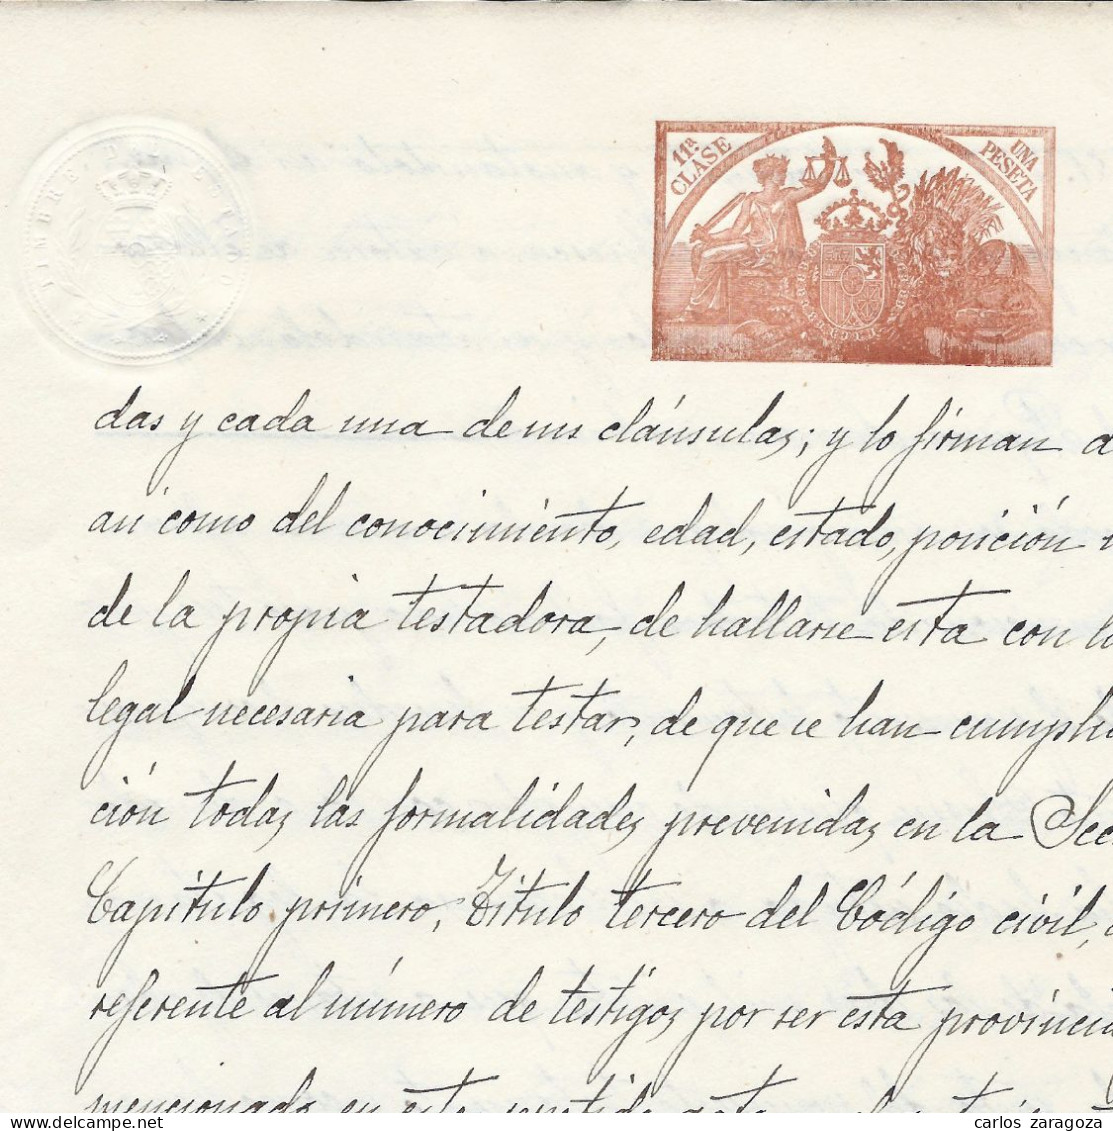 TIMBRE DEL ESTADO
11ª CLASE
UNA PESETA
das y cada una de sus cláusulas; y lo firman
así como del conocimiento, edad, estado, posición
de la propia testadora, de hallarse esta con
legal necesaria para testar, de que se han
ción todas las formalidades prevenidas en la
Capítulo primero, Título tercero del Código civil,
referente al número de testigos por ser esta provincia
mencionado en este
carlos zaragoza